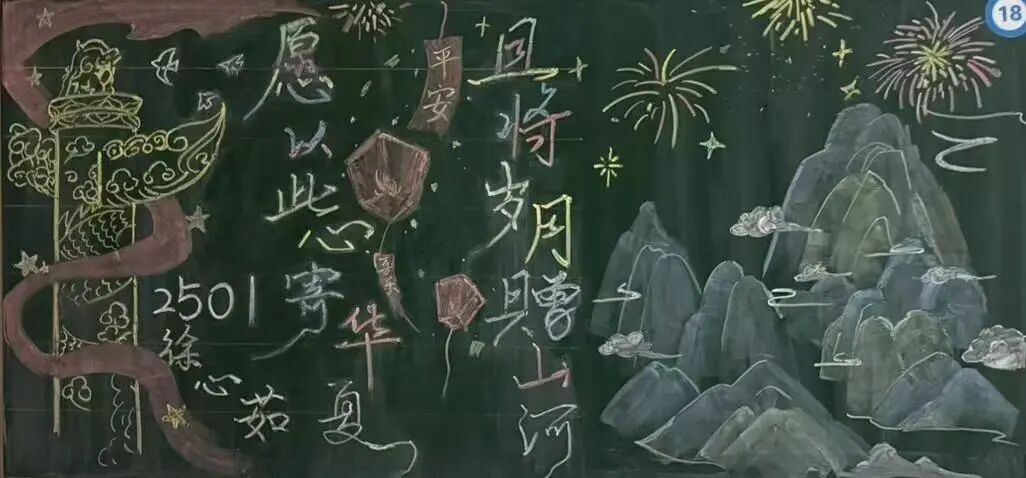 18
愿以此心寄华夏
平安
喜乐
且将岁月赠山河
2501
徐心茹